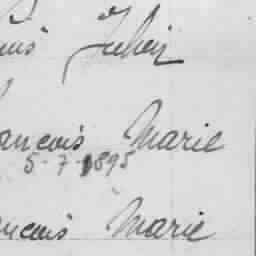 Julien
ancois Marie
5-7-1895
ancois Marie